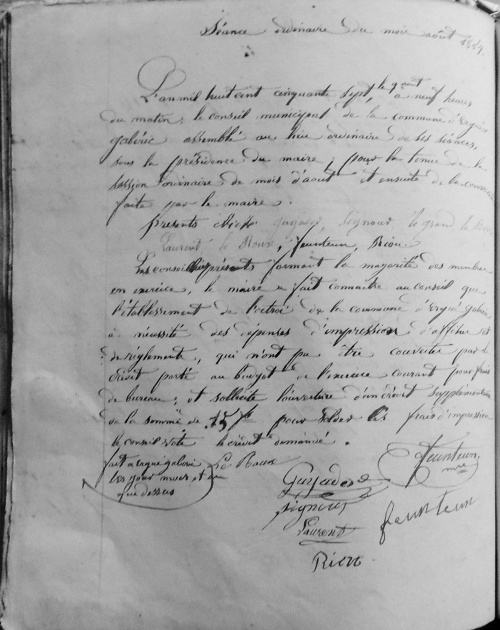 Séance ordinaire du mois août 1857.
L'an mil huit cent cinquante sept, le 9 aout à neuf heures
du matin, le conseil municipal de la commune d'Ergué
gabéric assemblé au lieu ordinaire de ses séances,
sous la présidence du maire, pour la tenue de la
session ordinaire de mois d'aout et ensuite de la
faite par le maire.
présents le grand,
Laurent, le Roux, feunteun, Riou
Les conseillers présents formant la majorité des membres
en exercice, le maire a fait connaitre au conseil que
l'établissement de l'octroi de la commune d'Ergué gabéric
a nécessité des dépenses d'impression d'affiches et
de réglements, qui n'ont pu être couvertes par le
crédit porté au budget de l'exercice courant pour frais
de bureau; et sollicite l'ouverture d'un crédit supplémentaire
de la somme de 15f pour solder les frais d'impression
le conseil vote le crédit demandé.
fait à ergué gabéric Le Roux
les jour mois et an
que dessus
feunteun
Laurent
feunteun
Riou